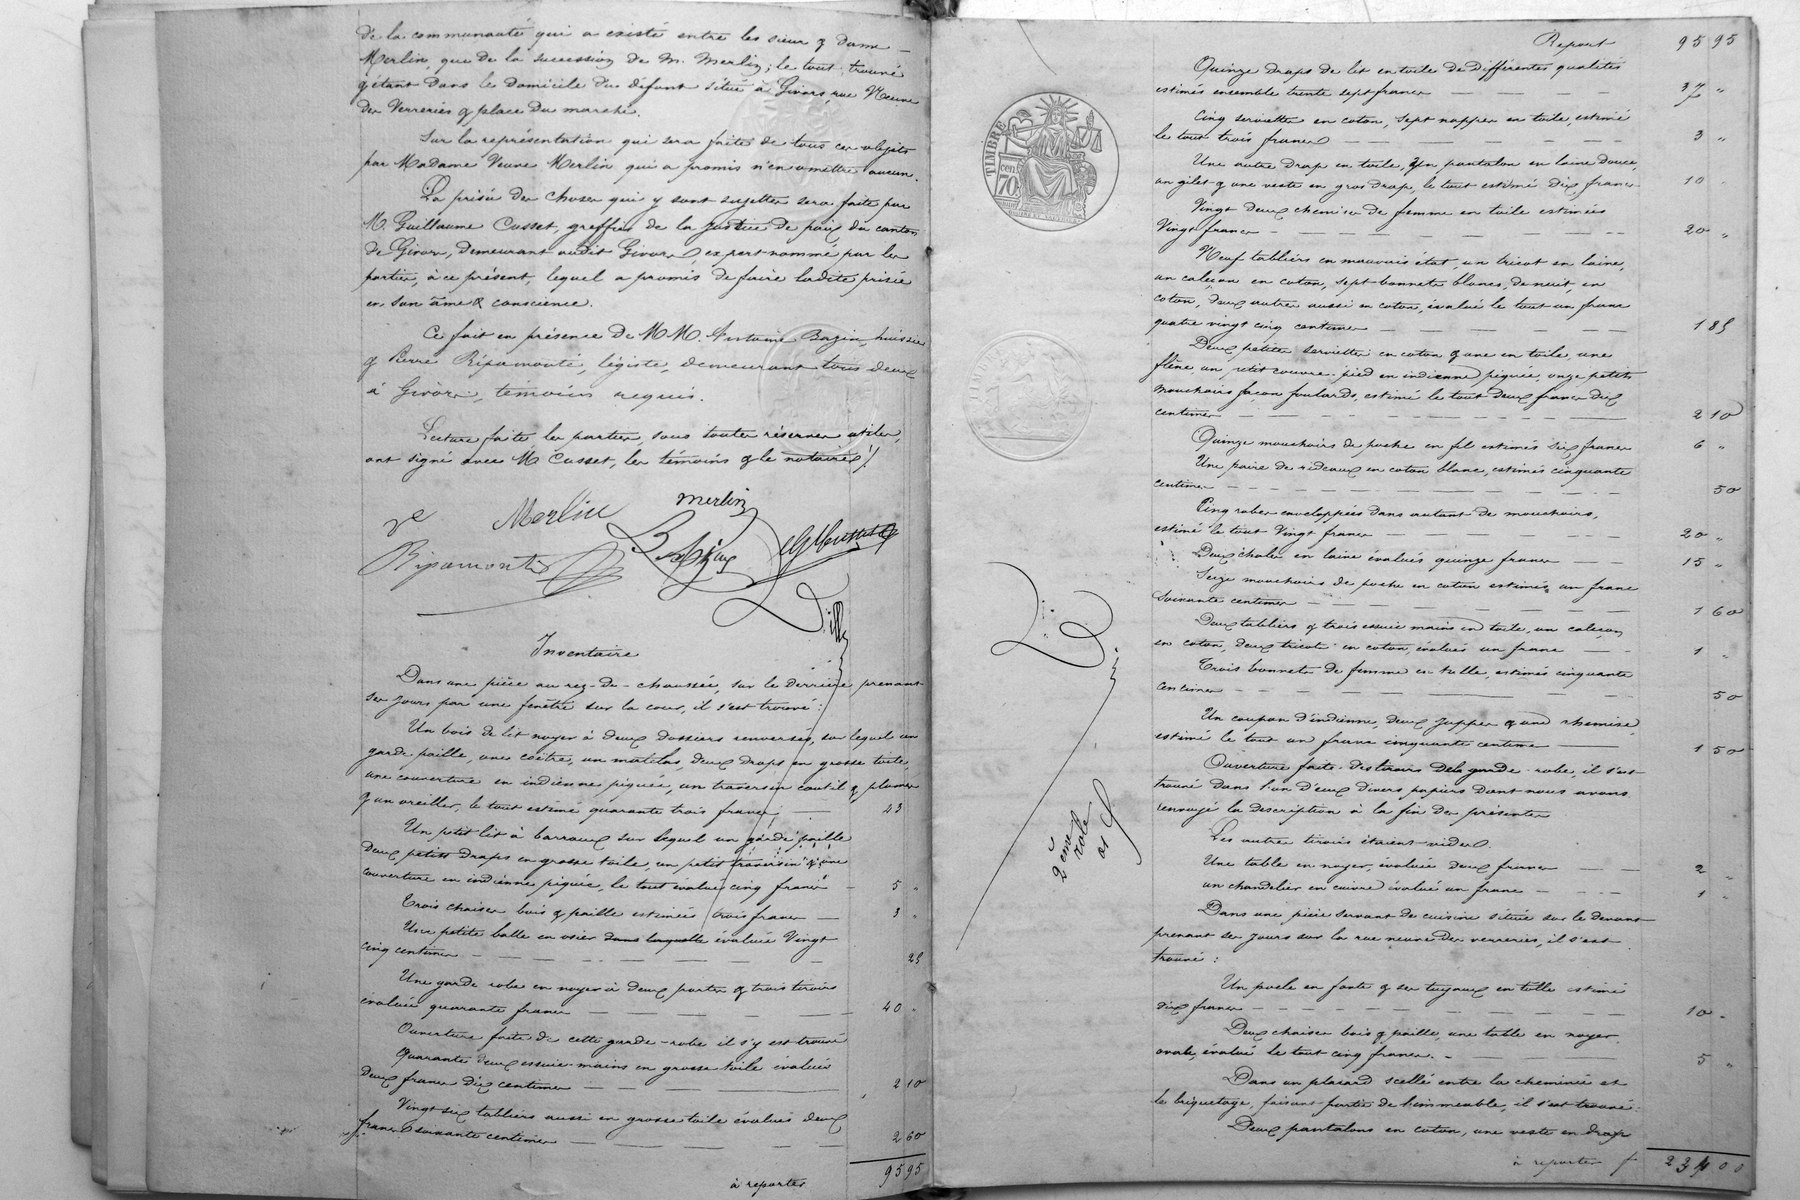 de la communauté qui a existé entre les sieur & dame
Merlin, que de la succession de M. Merlin; le tout trouvé
& étant dans le domicile du défunt situé à Givors, rue Neuve
des Verreries & place du marché.
Sur la représentation qui sera faite de tous ces objets
par Madame Veuve Merlin qui a promis n'en omettre aucun.
La prisée des choses qui y sont sujettes sera faite par
M. Guillaume Cusset, greffier de la justice de paix du canton
de Givors, demeurant audit Givors, expert nommé par les
parties, à ce présent, lequel a promis de faire ladite prisée
en son âme & conscience.
Ce fait en présence de MM. Antoine Bazin, huissier
& Pierre Ripamonté, légiste, demeurant tous deux
à Givors, témoins requis.
Lecture faite les parties, sous toutes réserves utiles,
ont signé avec M Cusset, les témoins & le notaire ./.
Ve Merlin
Merlin
Ripamonte
Inventaire
Dans une pièce au rez-de-chaussée, sur le derrière prenant
ses jours par une fenêtre sur la cour, il s'est trouvé :
Un bois de lit noyer à deux dossiers renversés, sur lequel un
garde paille, une coëtre, un matelas, deux draps en grosse toile,
une couverture en indienne piquée, un traversin coutil & plumes
& un oreiller, le tout estimé quarante trois francs 43
Un petit lit à barreaux sur lequel un garde paille
deux petits draps en grosse toile, un petit traversin & une
couverture en indienne piquée, le tout évalué cinq francs 5 "
Trois chaises bois & paille estimées trois francs 3 "
Une petite balle en osier dans laquelle évaluée Vingt
cinq centimes 25
Une garde robe en noyer à deux portes & trois tiroirs
évaluée quarante francs 40 "
Ouverture faite de cette garde-robe il s'y est trouvé
Quarante deux essuie-mains en grosse toile évalués
deux francs dix centimes 2 10
Vingt six tabliers aussi en grosse toile évalués deux
francs soixante centimes 2 60
à reporter 95 95
Report 95 95
Quinze draps de lit en toile de différentes qualités
estimés ensemble trente sept francs 37 "
TIMBRE
70 cen
Cinq serviettes en coton, sept nappes en toile, estimé
le tout trois francs 3 "
Une autre drap en toile, Un pantalon en laine douce,
un gilet & une veste en gros drap, le tout estimé dix francs 10 "
Vingt deux chemises de femme en toile estimées
Vingt francs 20 "
Neuf tabliers en mauvais état, un tricot en laine,
un caleçon en coton, sept bonnets blancs, de nuit, en
coton, deux autres aussi en coton, évalué le tout un franc
quatre vingt cinq centimes 1 85
Deux petites serviettes en coton & une en toile, une
flène un petit couvre-pied en indienne piquée, onze petits
mouchoirs façon foulards, estimé le tout deux francs dix
centimes 2 10
Quinze mouchoirs de poche en fil estimés six francs 6 "
Une paire de rideaux en coton blanc, estimés cinquante
centimes 50
Cinq robes enveloppées dans autant de mouchoirs,
estimé le tout Vingt francs 20 "
Deux châles en laine évalués quinze francs 15 "
Seize mouchoirs de poche en coton estimés un franc
soixante centimes 1 60
Deux tabliers & trois essuie mains en toile, un caleçon
en coton, deux tricots en coton, évalués un franc 1 "
Trois bonnets de femme en tulle, estimés cinquante
centimes 50
Un coupon d'indienne, deux juppes & une chemise,
estimé le tout un franc cinquante centime 1 50
Ouverture faite des tiroirs de la garde-robe, il s'est
trouvé dans l'un d'eux divers papiers dont nous avons
renvoyé la description à la fin des présentes
Les autres tiroirs étaient vides.
Une table en noyer, évaluée deux francs 2 "
un chandelier en cuivre évalué un franc 1 "
2ème
role
Dans une pièce servant de cuisine située sur le devant
prenant ses jours sur la rue neuve des verreries, il s'est
trouvé :
Un poele en fonte & ses tuyaux en tolle estimé
dix francs 10 "
Deux chaises bois & paille, une table en noyer
ovale, évalué le tout cinq francs. 5 "
Dans un placard scellé entre la cheminée et
le briquetage, faisant partie de l'immeuble, il s'est trouvé :
Deux pantalons en coton, une veste en drap
à reporter f 234 00